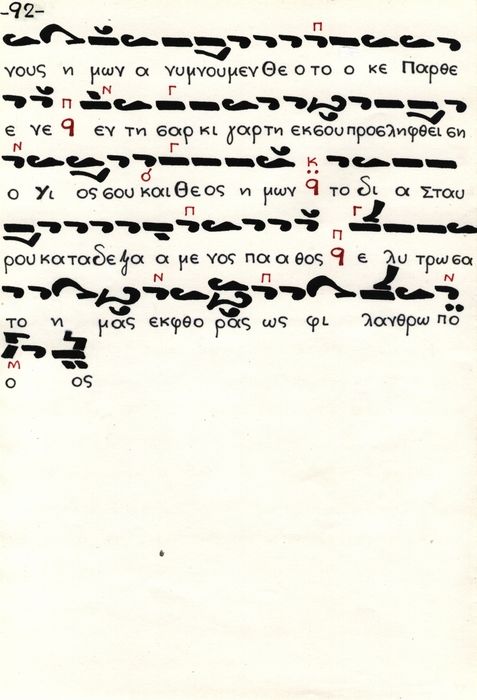 -92-
Π
νους η μων α νυμνουμεν Θε ο το ο κε Παρθε
Π Ν Γ
ε νε q εν τη σαρ κι γαρ τη εκ σου προσληφθει ση
Ν Γ Κ
ο Υι ος σου και Θε ος η μων q το δι α Σταυ
Π Π Γ
ρου καταδεξα α με νος πα α θος q ε λυ τρωσα
Ν Π Ν
το η μας εκ φθο ρας ως φι λανθρω πο
Μ
ο ος